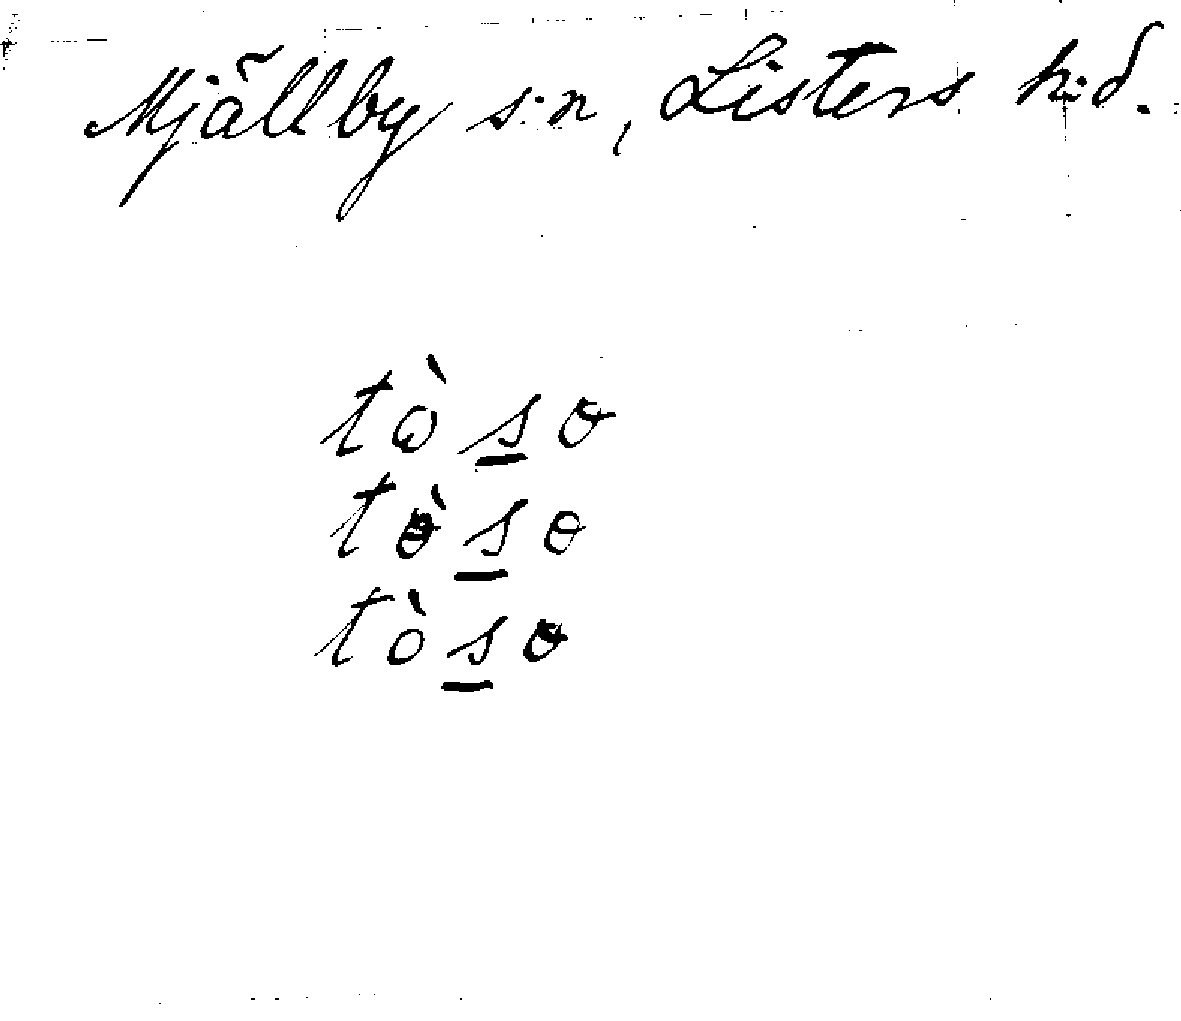 Mjällby s:n, Listers h:d.
tò̱so
tòs̱ɵ
tòs̱ɵ